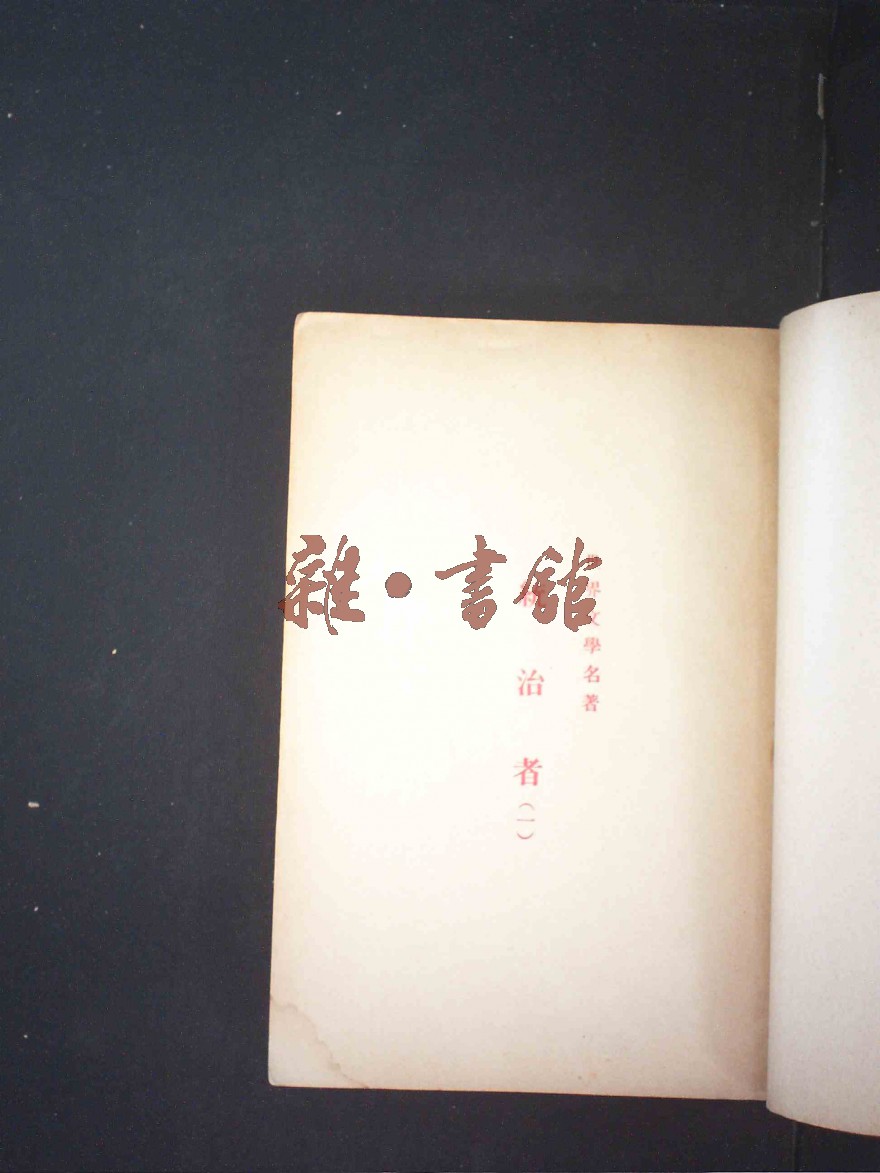 世界文學名著
統治者(一)
雜·書館